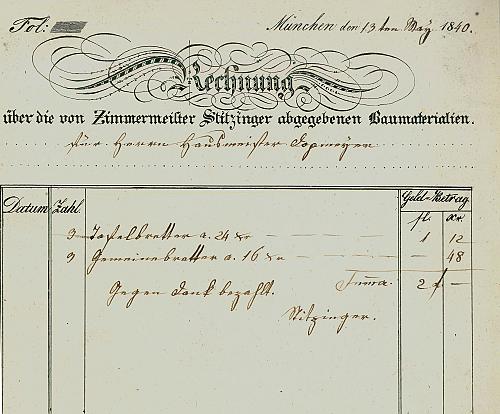 Fol:
München den 13ten May 1840.
Rechnung
über die von Zimmermeister Stitzinger abgegebenen Baumaterialien.
für Herrn Hausmeister
Datum Zahl. Geld-Betrag
fl. xr
3 Tafelbretter a. 24 xr — 1 12
3 Gemeinebretter a. 16 xr — — 48
Summa. 2 f —
Gegen Dank bezahlt.
Stitzinger.